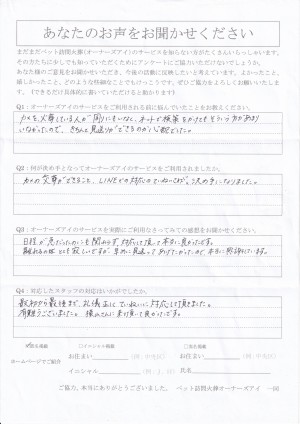 あなたのお声をお聞かせください
まだまだペット訪問火葬(オーナーズアイ)のサービスを知らない方がたくさんいらっしゃいます。
その方たちに少しでも知っていただくためにアンケートにご協力いただけないでしょうか。
あなた様のご意見をお聞かせいただき、今後の活動に反映したいと考えています。よかったこと、
嬉しかったこと、どのような些細なことでもけっこうです。ぜひご協力をよろしくお願いいたし
ます。(できるだけ具体的に書いていただけると助かります!)
Q1:オーナーズアイのサービスをご利用される前に悩んでいたことをお教えください。
カメを火葬している人が周りにもいなく、ネットで検索をかけてもそういう方があまり
いなかったので、きちんと見送りができるのか心配でした。
Q2:何が決め手となってオーナーズアイのサービスをご利用されましたか。
カメの火葬ができること、LINEでの対応のていねいさが決め手になりました。
Q3:オーナーズアイのサービスを実際にご利用なさってみての感想をお聞かせください。
日程が急だったのにも関わらず、対応して頂いて本当に良かったです。
離れるのはとても寂しいですが、早めに見送ってあげたかったので本当に感謝しています。
Q4:対応したスタッフの対応はいかがでしたか。
最初から最後まで、礼儀正しくていねいに対応して頂きました。
有難うございました。 に来て頂いて良かったです。
匿名掲載 □イニシャル掲載 □実名掲載
ホームページでご紹介 お住まい (例:中央区) お住まい (例:中央区)
イニシャル (例:J.H) 氏名
ご協力、本当にありがとうございました。 ペット訪問火葬オーナーズアイ